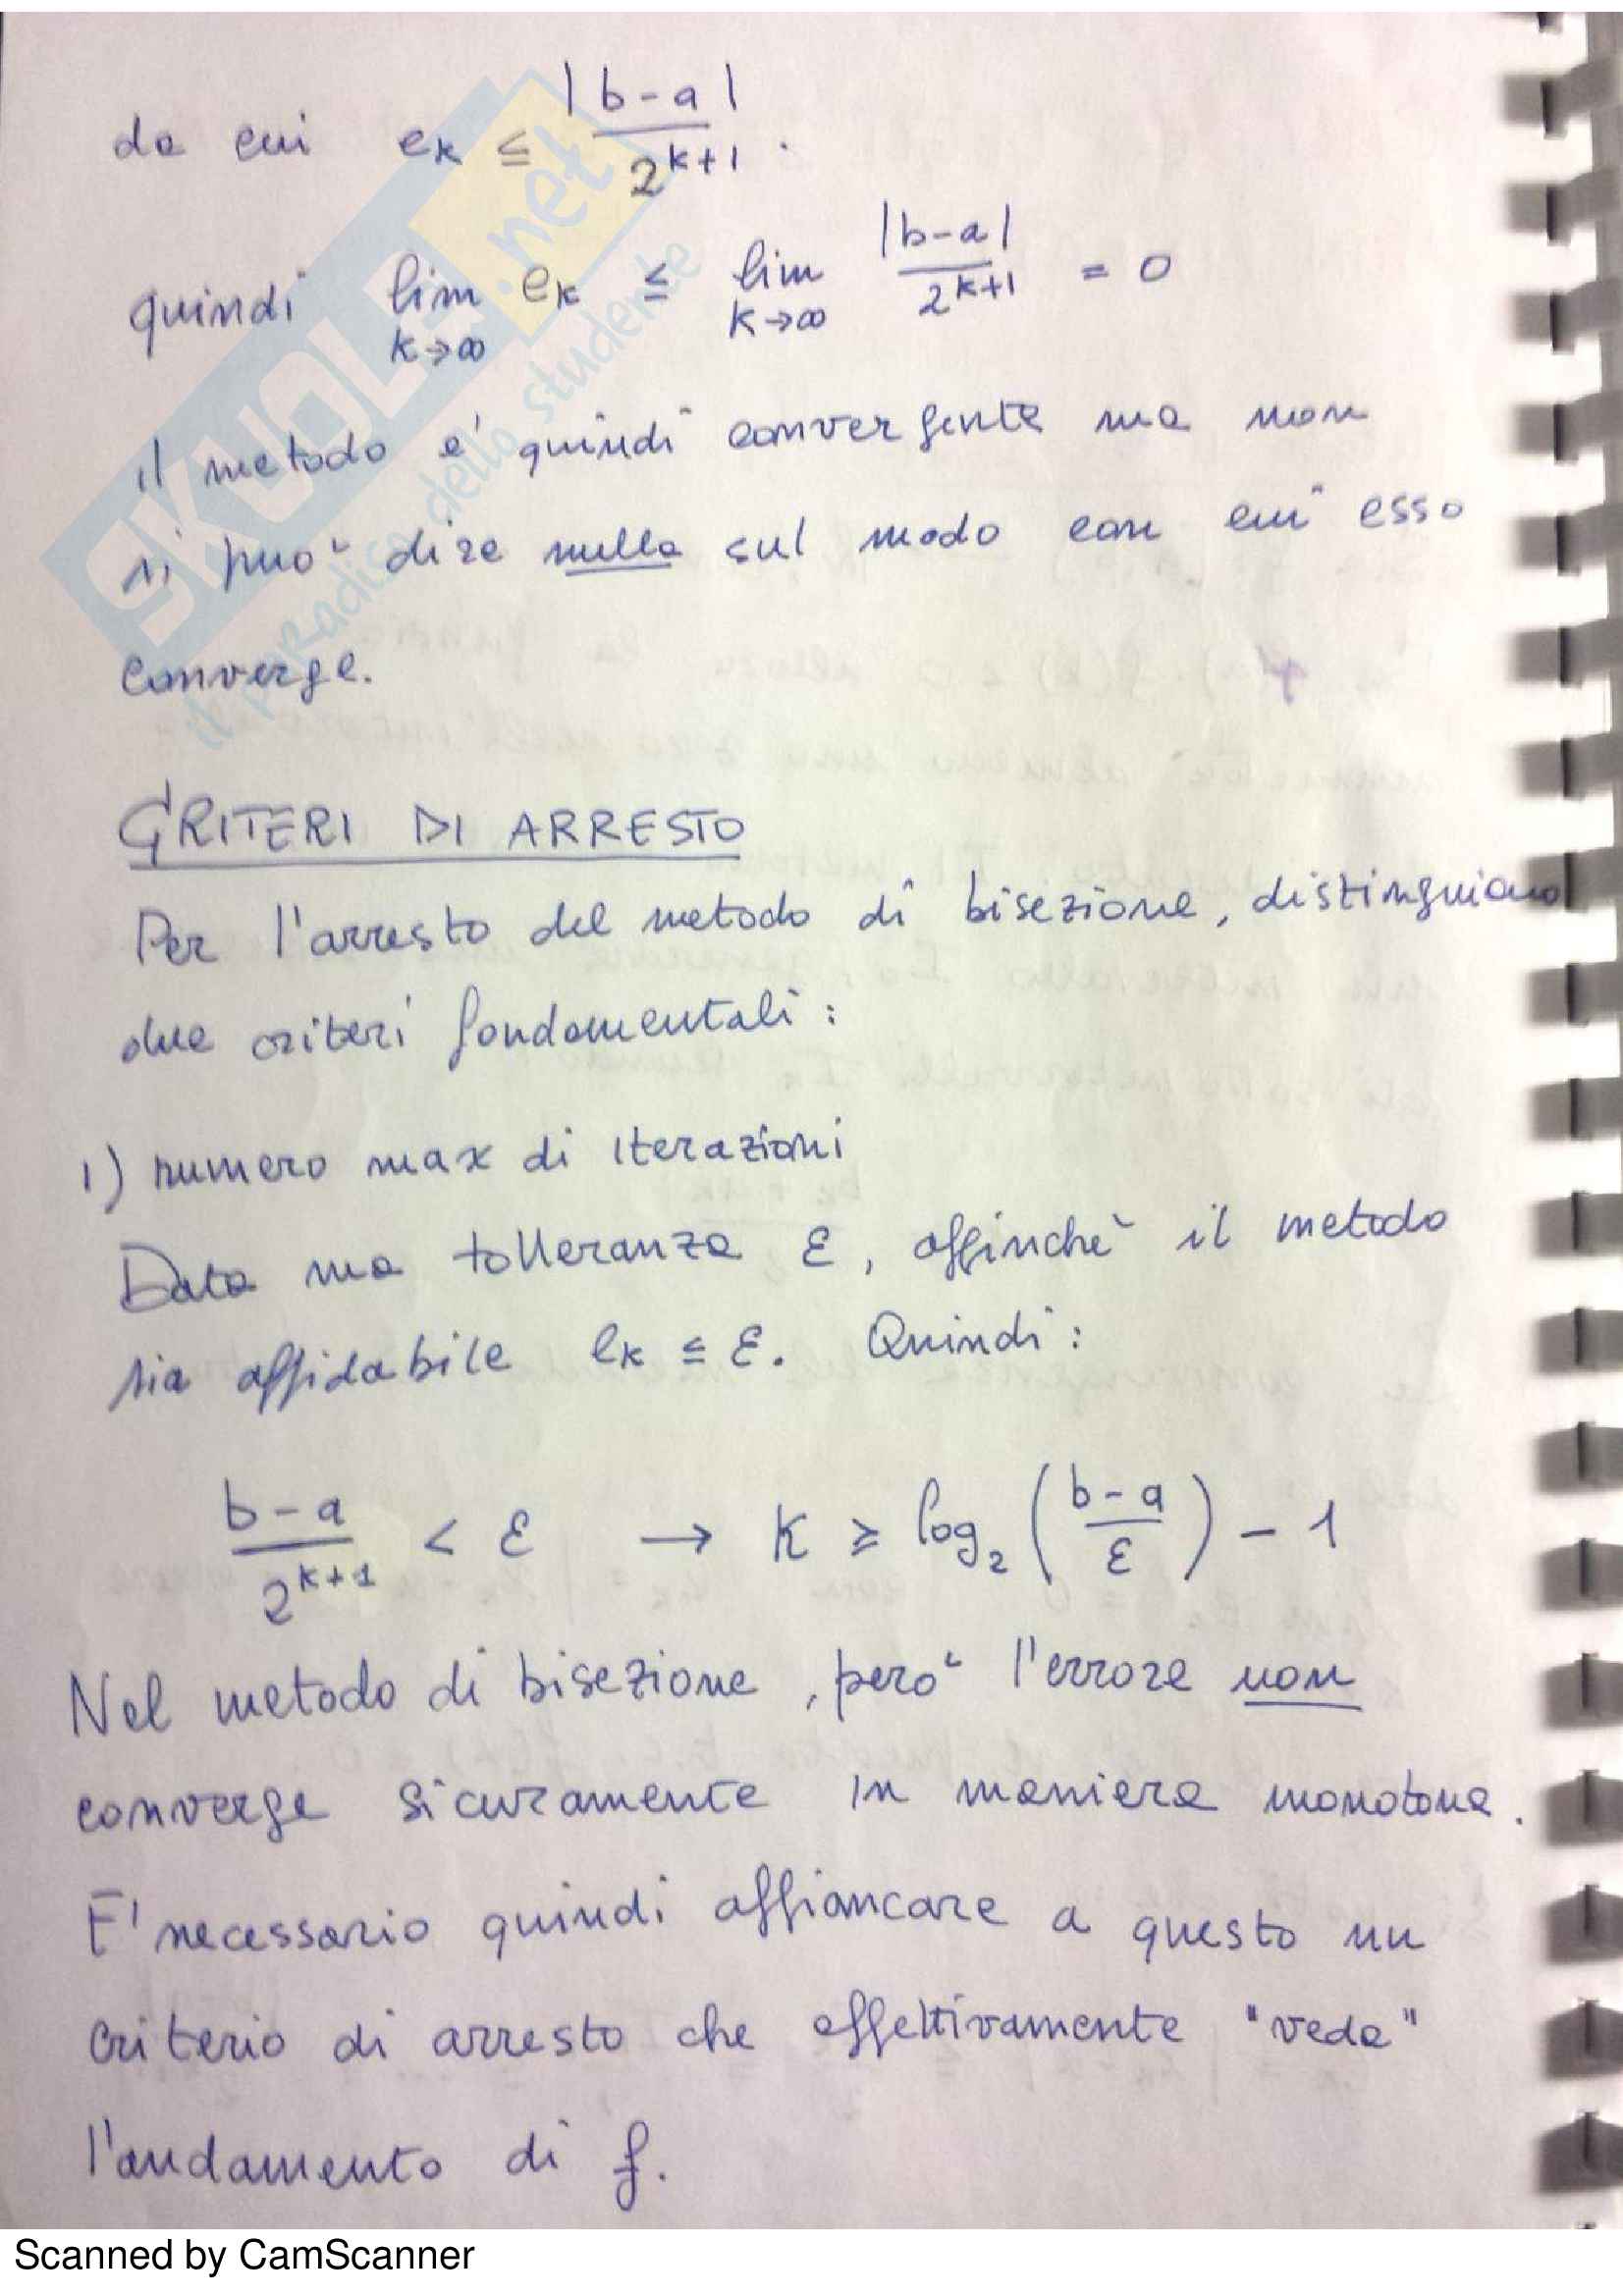 da cui e_k ≤ |b-a| / 2^{k+1} .
quindi lim_{k→∞} e_k ≤ lim_{k→∞} |b-a| / 2^{k+1} = 0
il metodo e' quindi convergente ma non
si puo' dire nulla sul modo con cui esso
converge.
CRITERI DI ARRESTO
Per l'arresto del metodo di bisezione, distinguiamo
due criteri fondamentali:
1) numero max di iterazioni
Data una tolleranza ε, affinchè il metodo
sia affidabile e_k ≤ ε. Quindi:
b-a / 2^{k+1} < ε → k ≥ log_2 (b-a / ε) - 1
Nel metodo di bisezione, pero' l'errore non
converge sicuramente in maniera monotona.
E' necessario quindi affiancare a questo un
criterio di arresto che effettivamente "veda"
l'andamento di f.
SKUOLA.net
il paradiso dello studente
Scanned by CamScanner